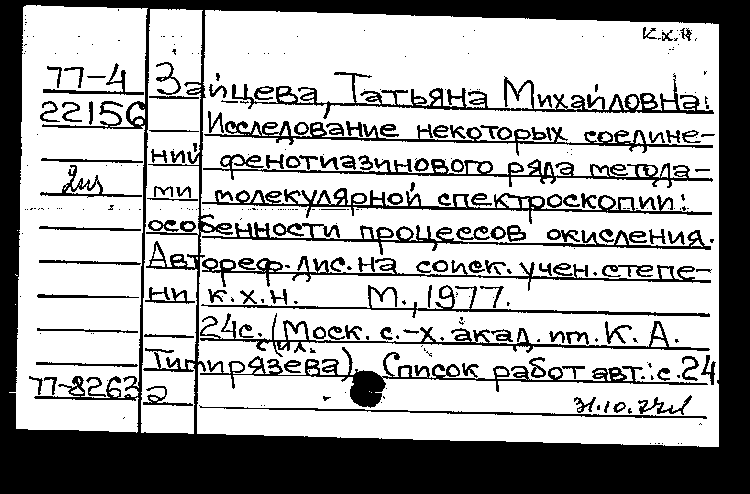 К.х.н.
77-4 Зайцева, Татьяна Михайловна.
22156 Исследование некоторых соедине-
ний фенотиазинового ряда метода-
2из ми молекулярной спектроскопии:
особенности процессов окисления.
Автореф. дис. на соиск. учен. степе-
ни к.х.н. М., 1977.
24с. (Моск. с.-х. акад. им. К. А.
с ил.
Тимирязева). Список работ авт.: с. 24.
77-82632
31.10.77